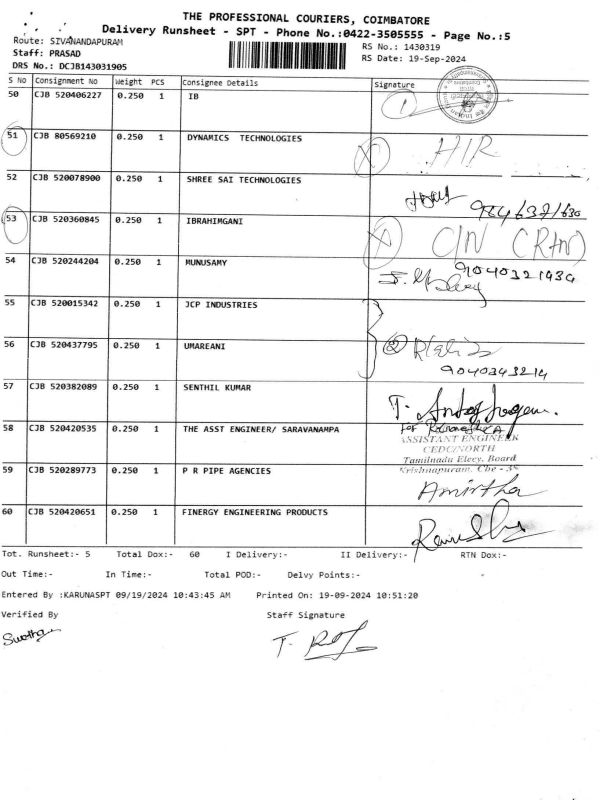 THE PROFESSIONAL COURIERS, COIMBATORE
Delivery Runsheet - SPT - Phone No.:0422-3505555 - Page No.:5
Route: SIVANANDAPURAM RS No.: 1430319
Staff: PRASAD RS Date: 19-Sep-2024
DRS No.: DCJB143031905
S No Consignment No Weight PCS Consignee Details Signature
50 CJB 520406227 0.250 1 IB
51 CJB 80569210 0.250 1 DYNAMICS TECHNOLOGIES
52 CJB 520078900 0.250 1 SHREE SAI TECHNOLOGIES
53 CJB 520360845 0.250 1 IBRAHIMGANI
C/N
54 CJB 520244204 0.250 1 MUNUSAMY
55 CJB 520015342 0.250 1 JCP INDUSTRIES
56 CJB 520437795 0.250 1 UMAREANI
9040343214
57 CJB 520382089 0.250 1 SENTHIL KUMAR
58 CJB 520420535 0.250 1 THE ASST ENGINEER/ SARAVANAMPA
ASSISTANT ENGINEER
CEDC/NORTH
Tamilnadu Elecy. Board
Krishnapuram, Cbe - 35
59 CJB 520289773 0.250 1 P R PIPE AGENCIES
Amirtha
60 CJB 520420651 0.250 1 FINERGY ENGINEERING PRODUCTS
Tot. Runsheet:- 5 Total Dox:- 60 I Delivery:- II Delivery:- RTN Dox:-
Out Time:- In Time:- Total POD:- Delvy Points:-
Entered By :KARUNASPT 09/19/2024 10:43:45 AM Printed On: 19-09-2024 10:51:20
Verified By Staff Signature